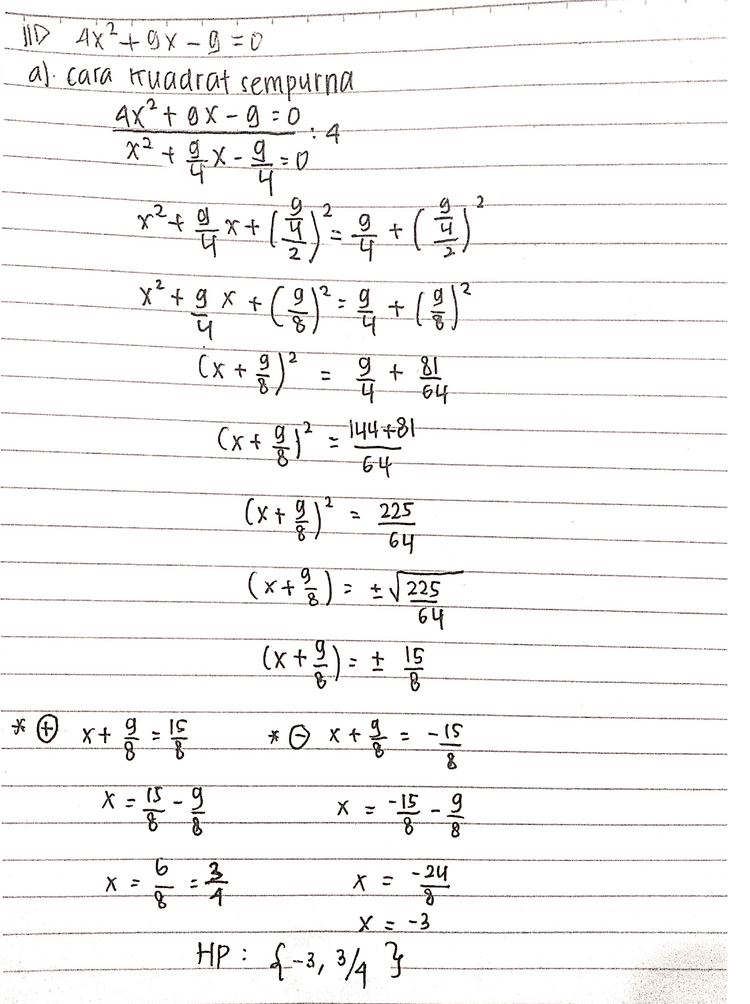 11D 4x² + 9x - 9 = 0
a). cara kuadrat sempurna
4x² + 9x - 9 = 0 : 4
x² + 9/4 x - 9/4 = 0
x² + 9/4 x + ((9/4)/2)² = 9/4 + ((9/4)/2)²
x² + 9/4 x + (9/8)² = 9/4 + (9/8)²
(x + 9/8)² = 9/4 + 81/64
(x + 9/8)² = (144+81)/64
(x + 9/8)² = 225/64
(x + 9/8) = ±√(225/64)
(x + 9/8) = ± 15/8
* ⊕ x + 9/8 = 15/8 * ⊖ x + 9/8 = -15/8
x = 15/8 - 9/8 x = -15/8 - 9/8
x = 6/8 = 3/4 x = -24/8
x = -3
HP : {-3, 3/4 }